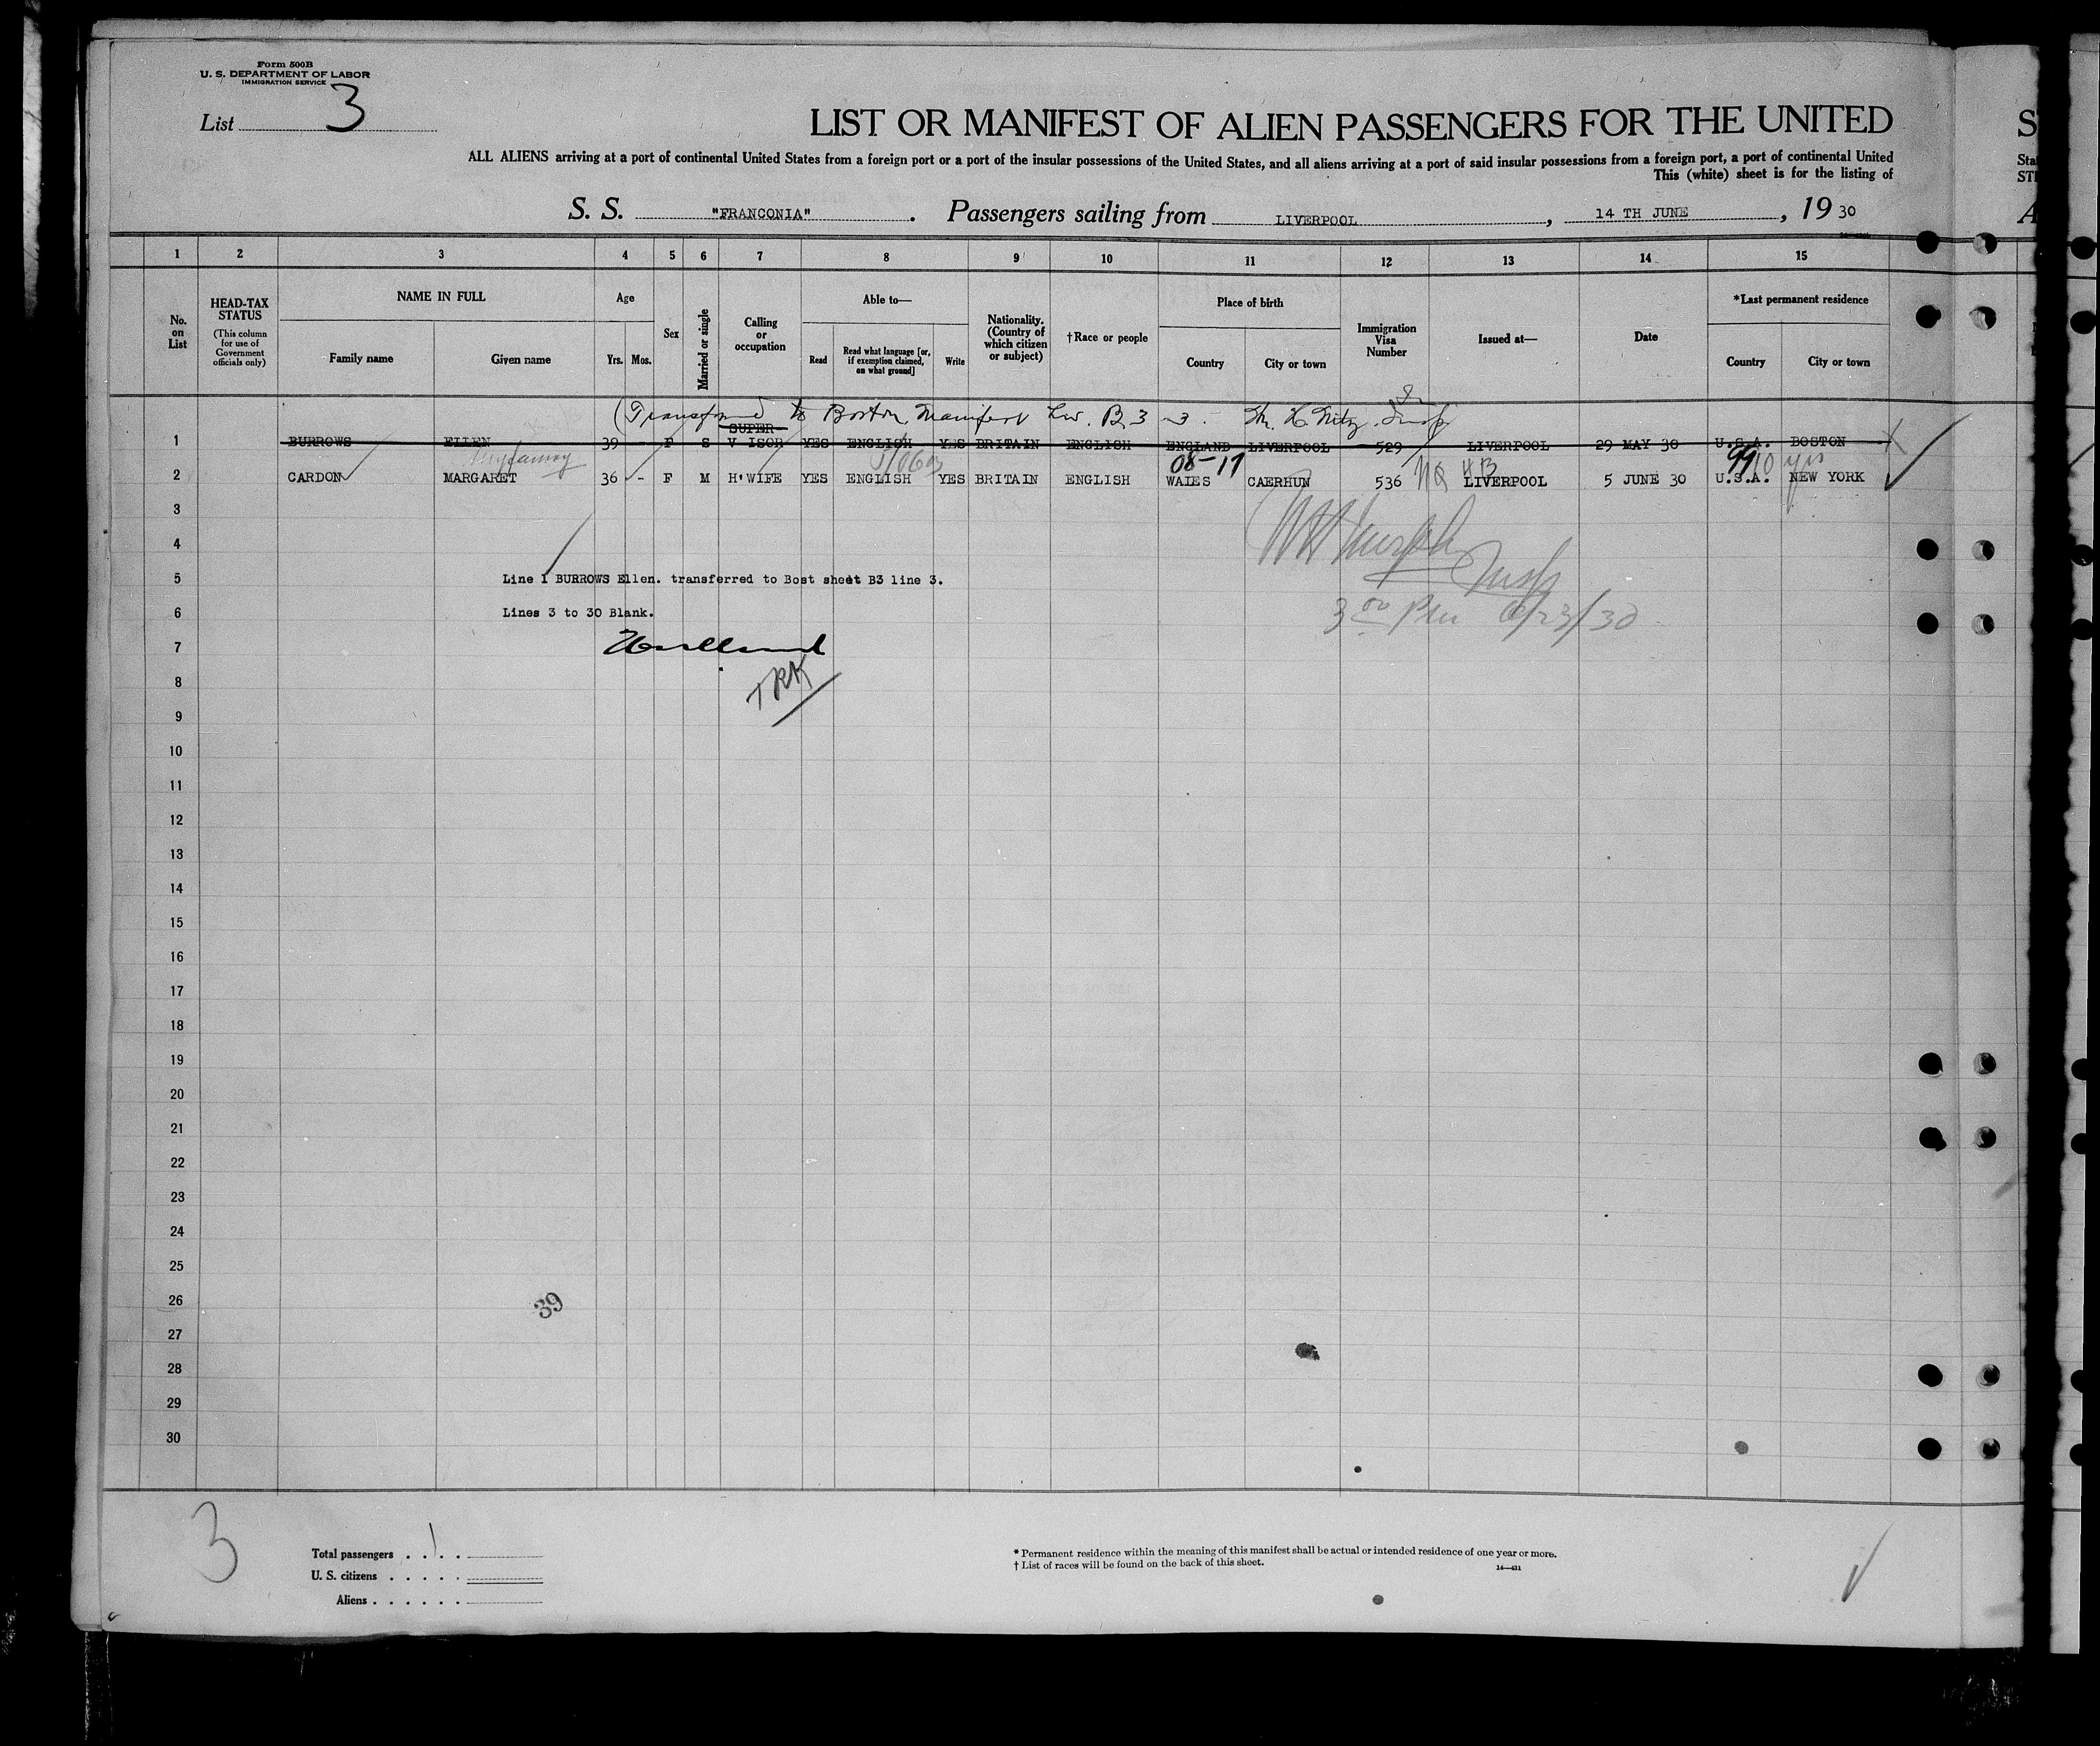 Form 500B
U. S. DEPARTMENT OF LABOR
IMMIGRATION SERVICE
List 3
LIST OR MANIFEST OF ALIEN PASSENGERS FOR THE UNITED
ALL ALIENS arriving at a port of continental United States from a foreign port or a port of the insular possessions of the United States, and all aliens arriving at a port of said insular possessions from a foreign port, a port of continental United
This (white) sheet is for the listing of
S. S. "FRANCONIA". Passengers sailing from LIVERPOOL, 14 TH JUNE, 19 30
1 2 3 4 5 6 7 8 9 10 11 12 13 14 15
No. on List
HEAD-TAX STATUS
(This column for use of Government officials only)
NAME IN FULL
Family name Given name
Age
Yrs. Mos.
Sex
Married or single
Calling or occupation
Able to—
Read Read what language [or, if exemption claimed, on what ground] Write
Nationality. (Country of which citizen or subject)
†Race or people
Place of birth
Country City or town
Immigration Visa Number
Issued at—
Date
*Last permanent residence
Country City or town
(Transferred to Boston Manifest B 3 - 3. Insp
SUPER-
1 BURROWS ELLEN 39 - F S V ISOR YES ENGLISH YES BRITAIN ENGLISH ENGLAND LIVERPOOL 529 LIVERPOOL 29 MAY 30 U.S.A. BOSTON X
08-17 99 10 yrs
2 CARDON MARGARET 36 - F M H'WIFE YES ENGLISH YES BRITAIN ENGLISH WALES CAERHUN 536 NQ LIVERPOOL 5 JUNE 30 U.S.A. NEW YORK
3
4
5 Line 1 BURROWS Ellen. transferred to Bost sheet B3 line 3.
Insp
6 Lines 3 to 30 Blank.
3 00 Pm 6/23/30
7
8
9
10
11
12
13
14
15
16
17
18
19
20
21
22
23
24
25
26
39
27
28
29
30
3
Total passengers . . . . 1
U. S. citizens . . . . .
Aliens . . . . . .
* Permanent residence within the meaning of this manifest shall be actual or intended residence of one year or more.
† List of races will be found on the back of this sheet.
14—431